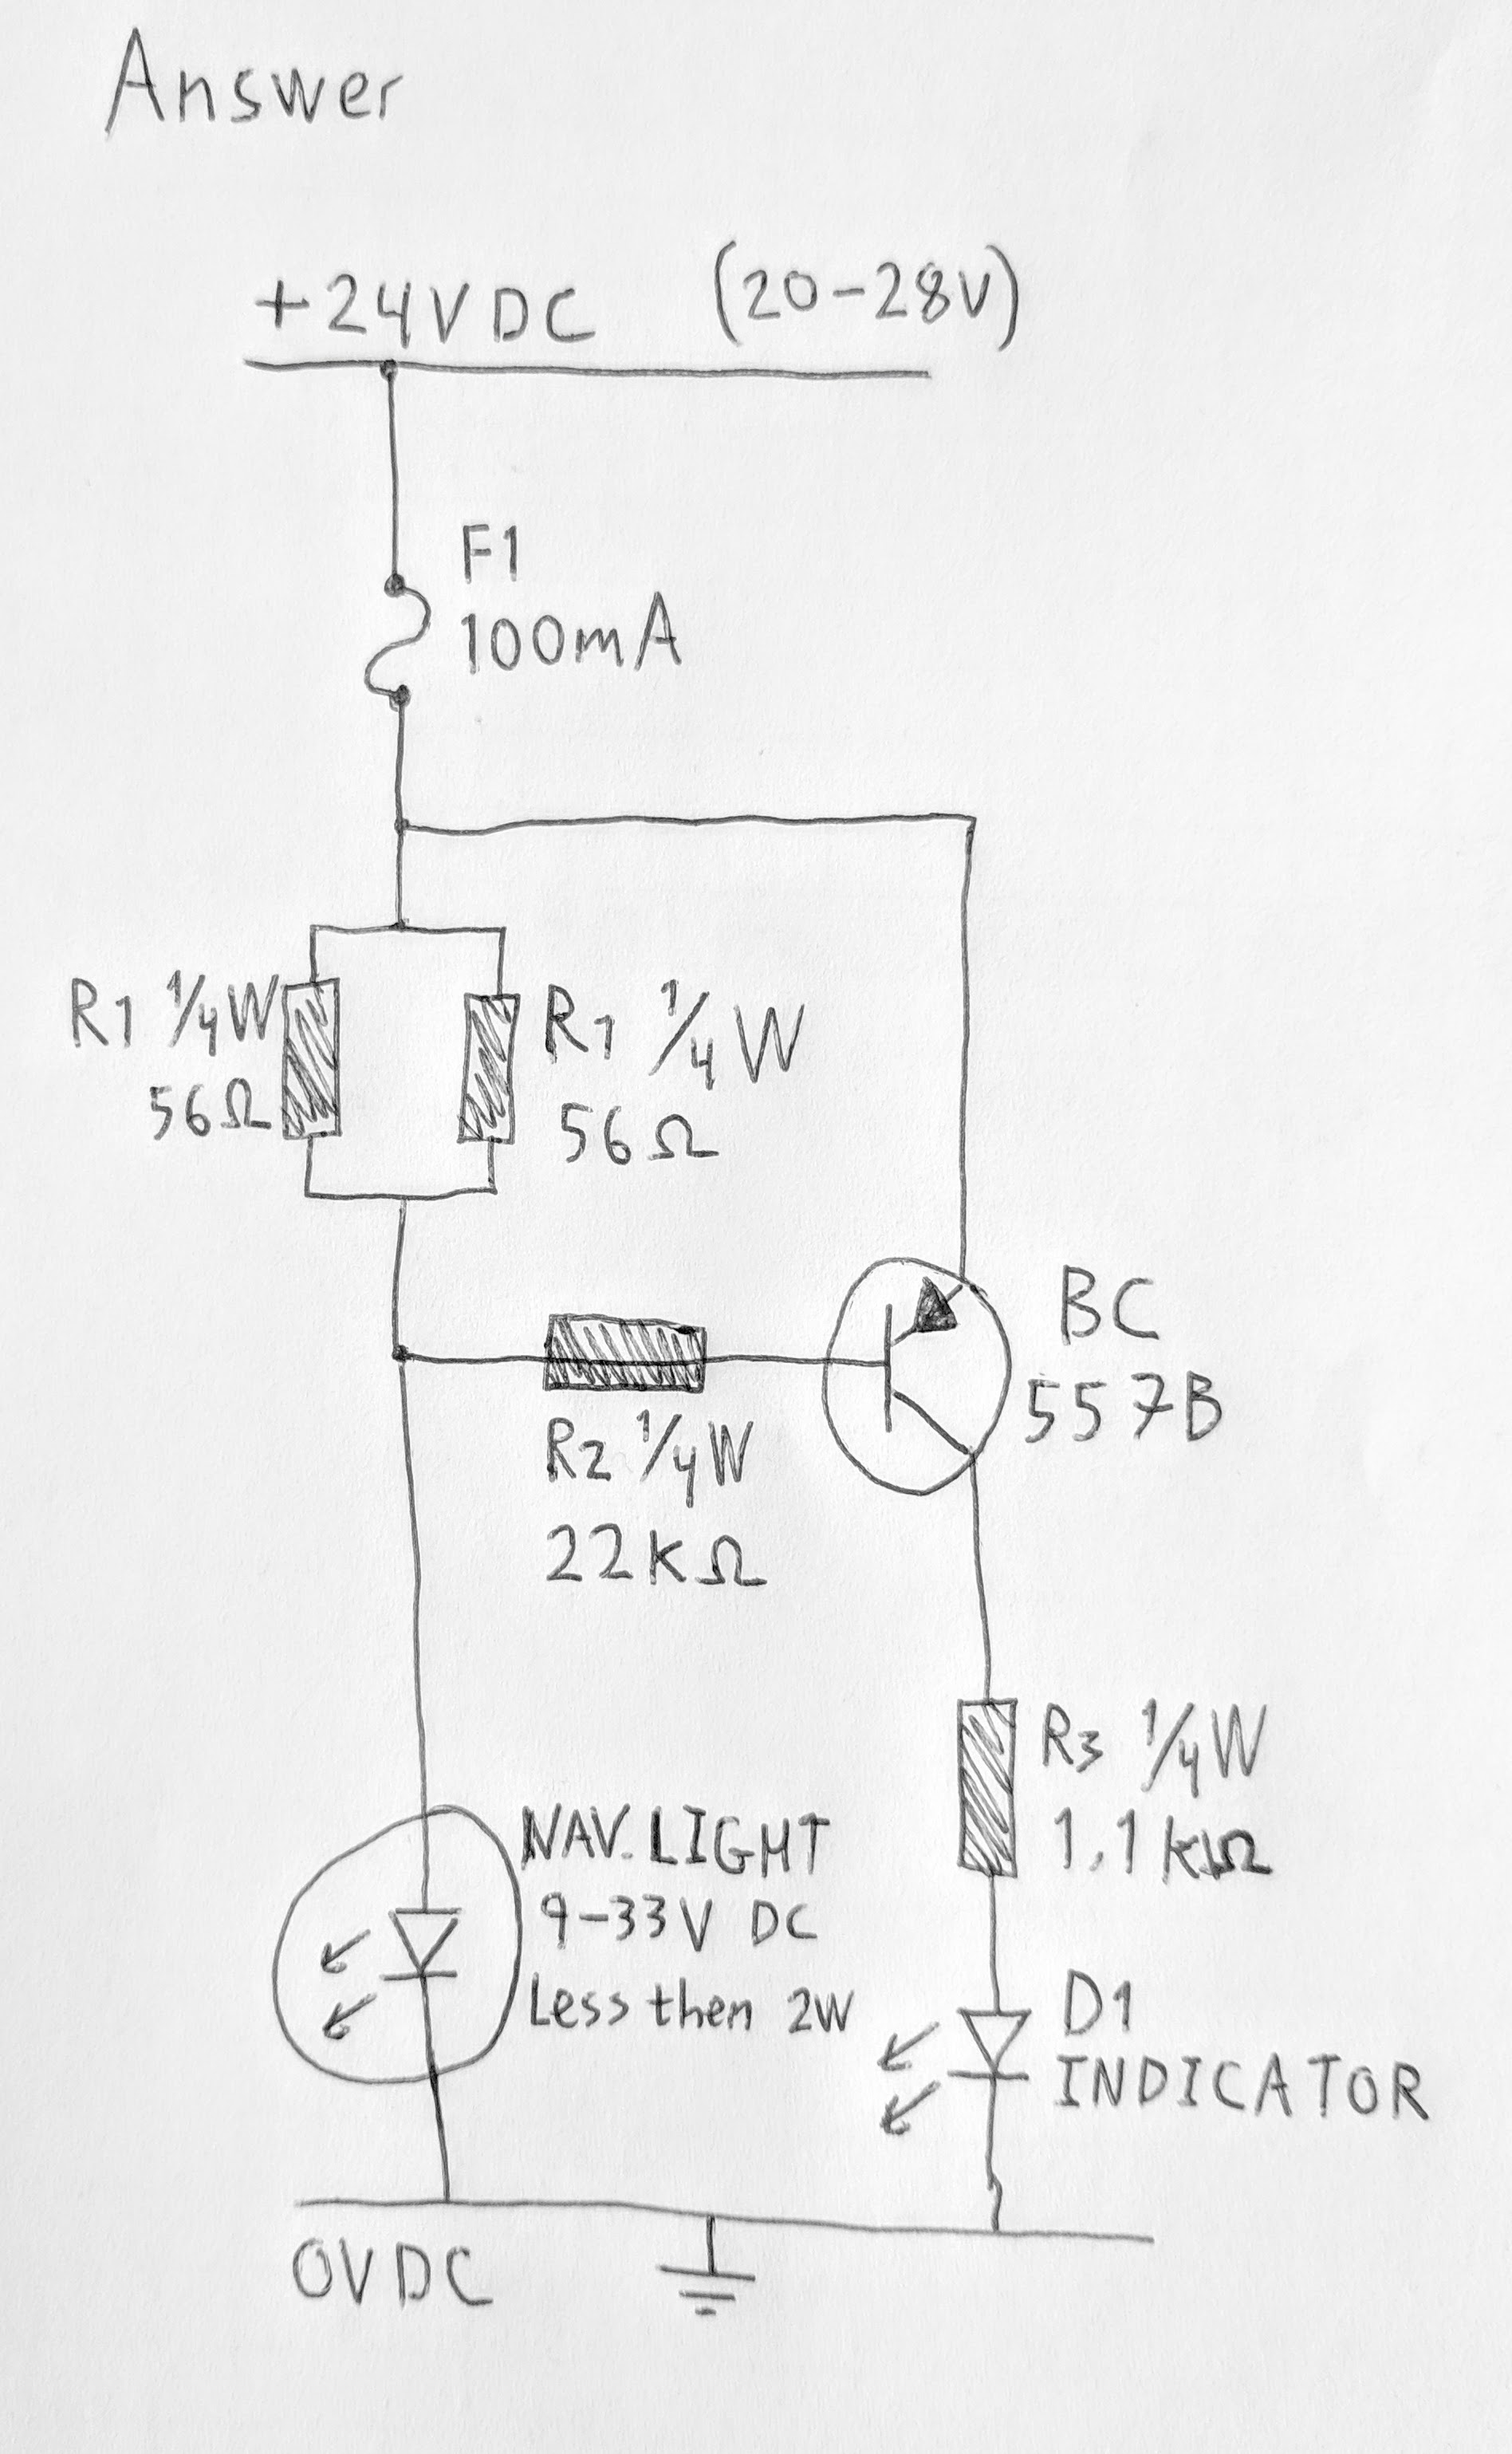 Answer
+24VDC (20-28V)
F1
100mA
R1 1/4W
56Ω
R1 1/4W
56Ω
BC
557B
R2 1/4W
22KΩ
R3 1/4W
1,1kΩ
NAV. LIGHT
9-33V DC
Less then 2W
D1
INDICATOR
0VDC